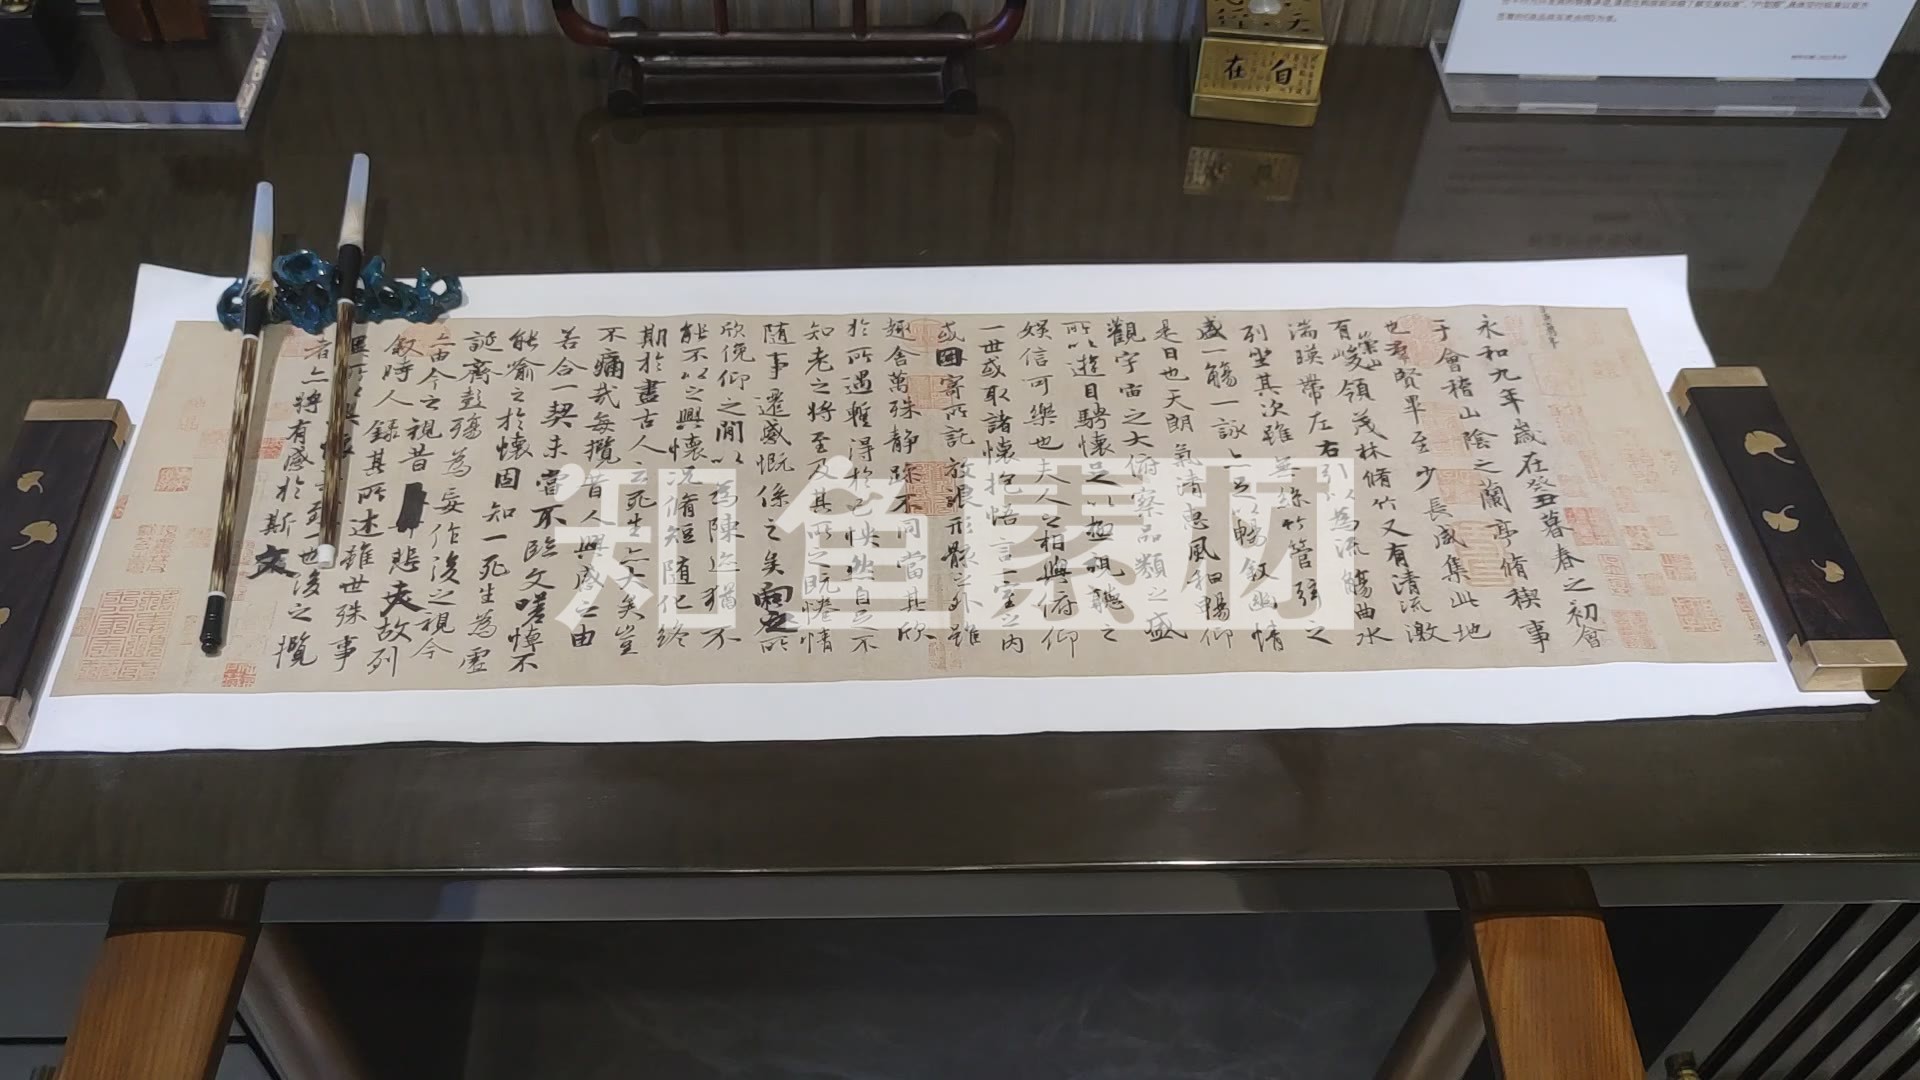 永和九年歲在癸丑暮春之初會
于會稽山陰之蘭亭脩稧事
也羣賢畢至少長咸集此地
有崇山峻領茂林脩竹又有清流激
湍暎帶左右引以為流觴曲水
列坐其次雖無絲竹管弦之
盛一觴一詠亦足以暢敘幽情
是日也天朗氣清惠風和暢仰
觀宇宙之大俯察品類之盛
所以遊目騁懷足以極視聽之
娛信可樂也夫人之相與俯仰
一世或取諸懷抱悟言一室之內
或因寄所託放浪形骸之外雖
趣舍萬殊靜躁不同當其欣
於所遇暫得於己怏然自足不
知老之將至及其所之既惓情
隨事遷感慨係之矣向之所
欣俛仰之閒以為陳迹猶不
能不以之興懷況脩短隨化終
期於盡古人云死生亦大矣豈
不痛哉每攬昔人興感之由
若合一契未嘗不臨文嗟悼不
能喻之於懷固知一死生為虛
誕齊彭殤為妄作後之視今
亦由今之視昔悲夫故列
敘時人錄其所述雖世殊事
異所以興懷一也後之攬
者亦將有感於斯文
自在
知鱼素材